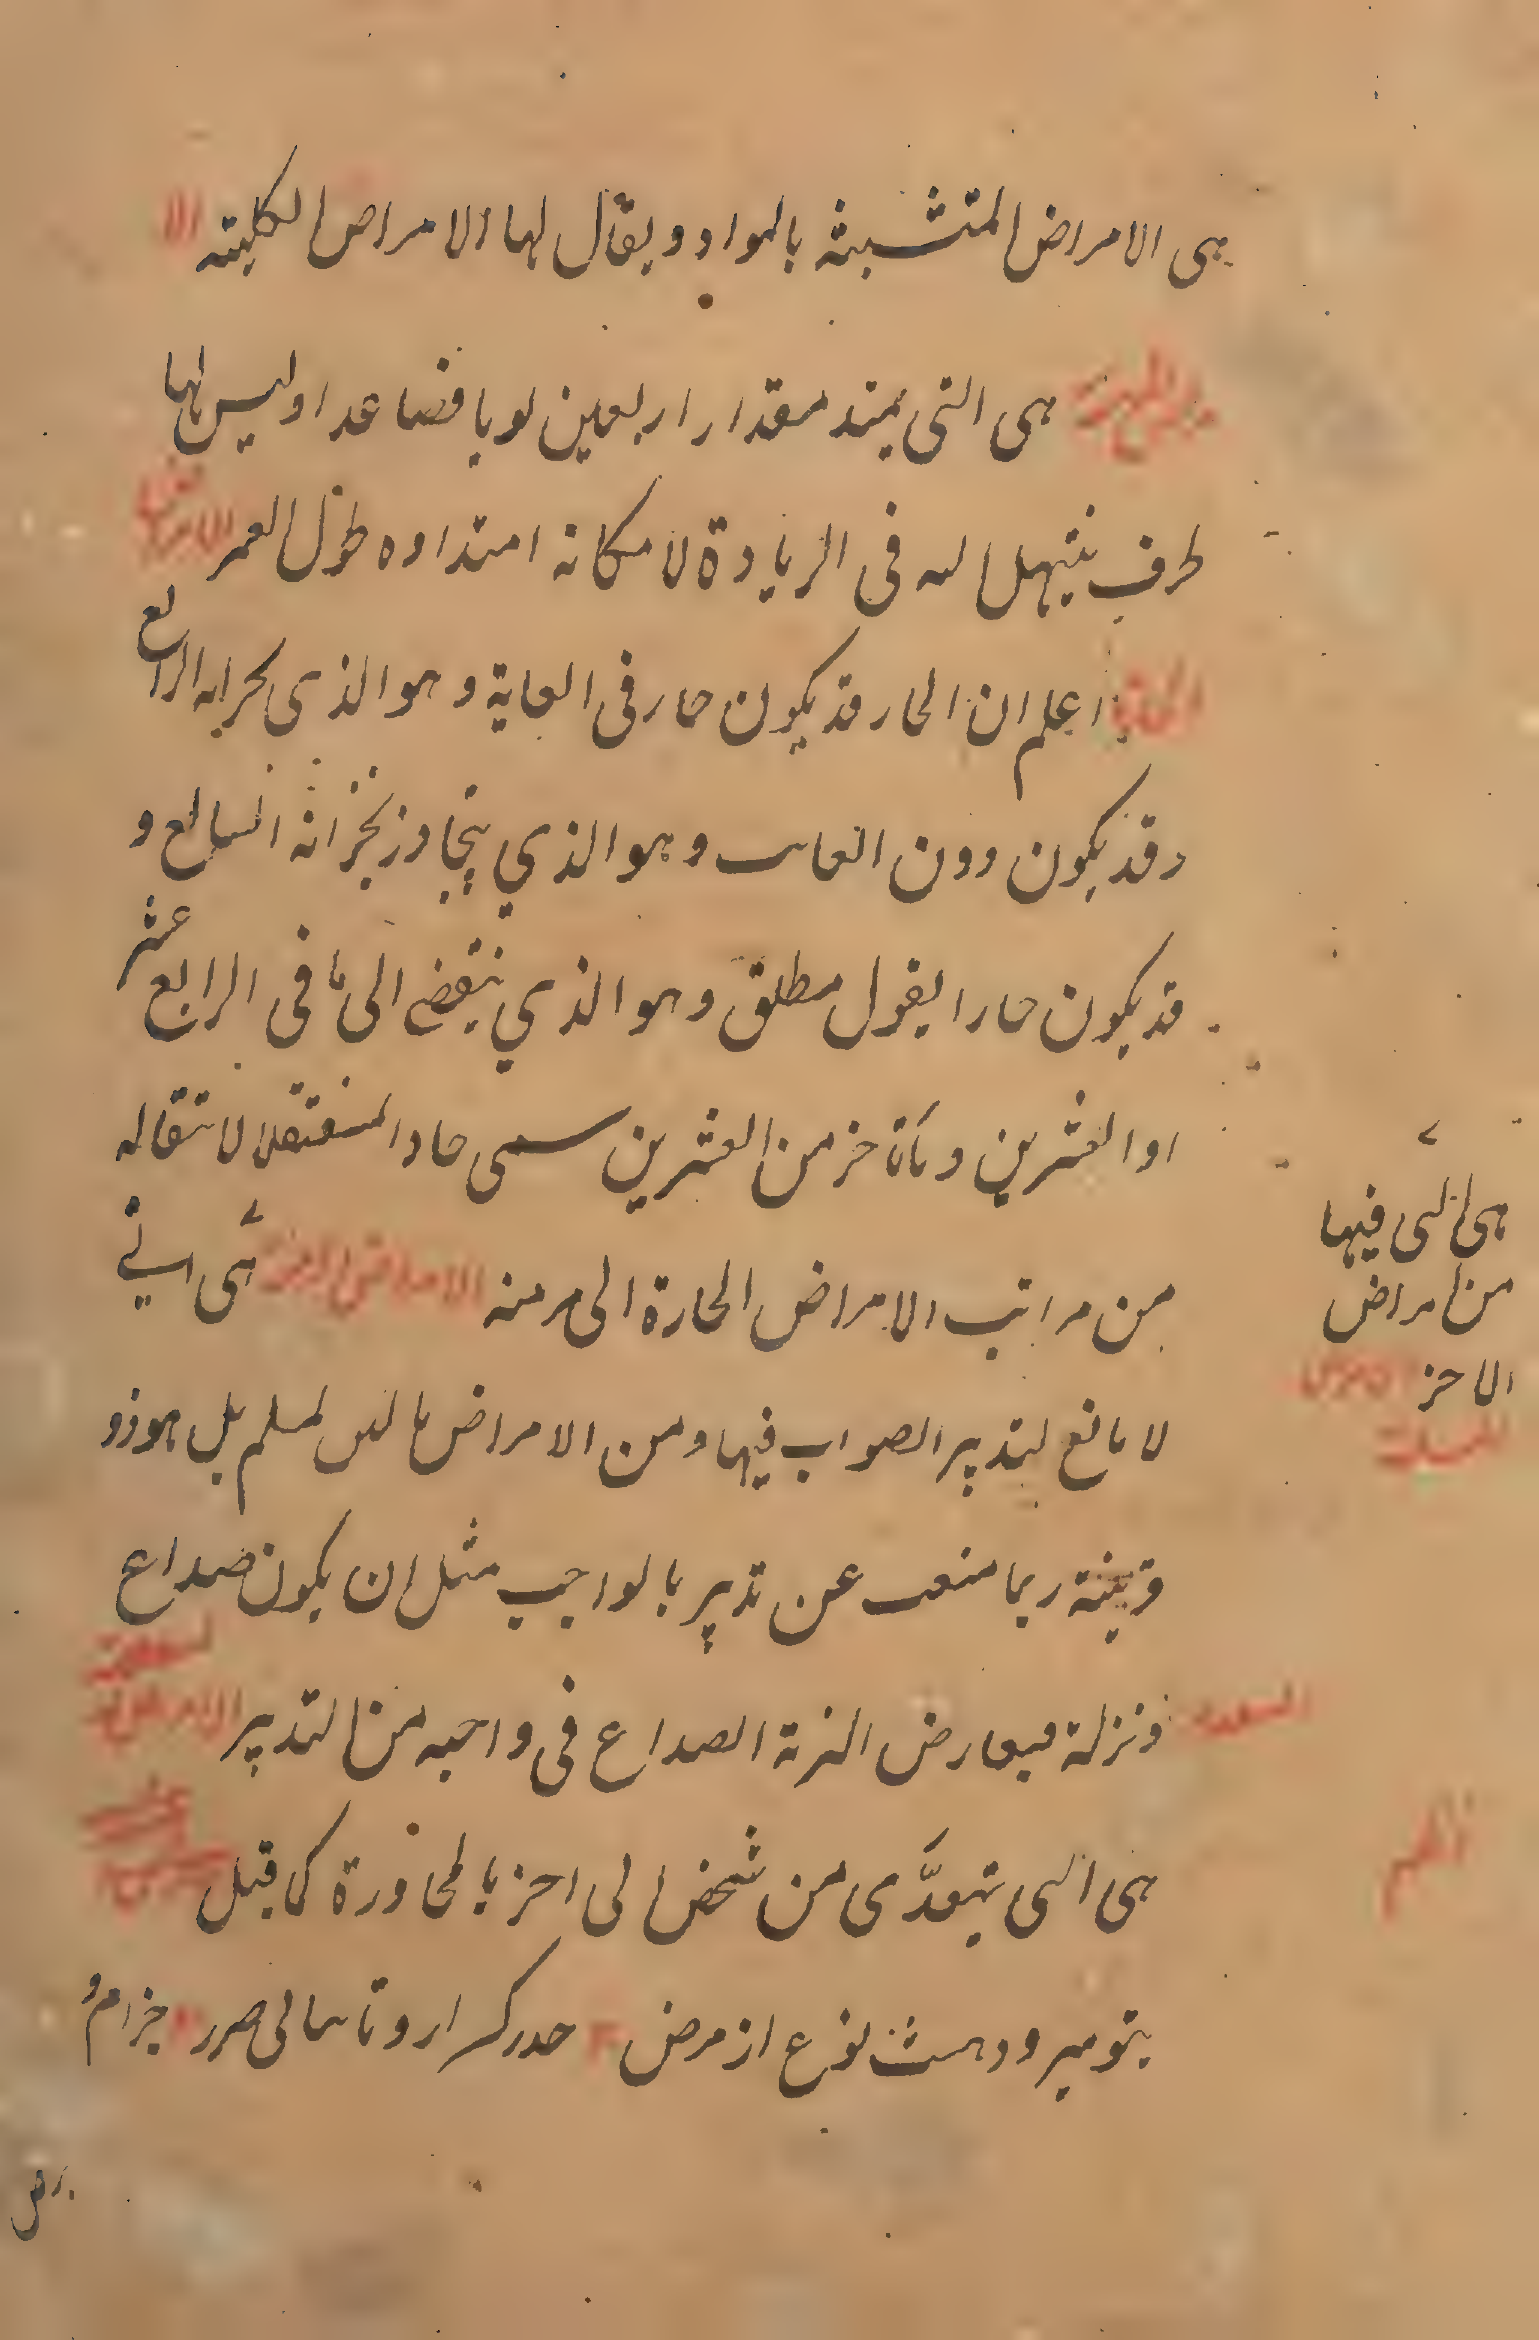 هى الامراض المتشبثة بالمواد ويقال لها الامراض الكليته الا
مراض المزمنة هى التى يمتد مقدار اربعين يوما فصاعدا وليس لها
طرف ينتهى اليه فى الزيادة لامكانه امتداده طول العمر الامراض
الحادة اعلم ان الحار قد يكون حار فى الغاية وهو الذى بحرانه الرابع
وقد يكون دون الغاية وهو الذي يتجاوز بحرانه السابع و
قد يكون حارا بقول مطلق وهو الذي ينقضے الى ما فى الرابع عشر
او العشرين وما تاخر من العشرين سمى حاد المنتقلا لانتقاله
من مراتب الامراض الحارة الى مزمنه الامراض هى التے
لا مانع لتدبير الصواب فيها ومن الامراض ما ليس لمسلم بل هو ذو
قرينة ربما منعت عن تدبير بالواجب مثل ان يكون صداع
ونزلة فيعارض النزلة الصداع فى واجبه من التدبير الامراض
هى التى يتعدَّى من شخص الى اخر بالمجاورة كما قيل
بتو ميرود هشت نوع از مرض حذر كن ار و تا نمالى ضرر جذام و
برص
هى التى فيها
من امراض
الاخر الامراض
المسلمة